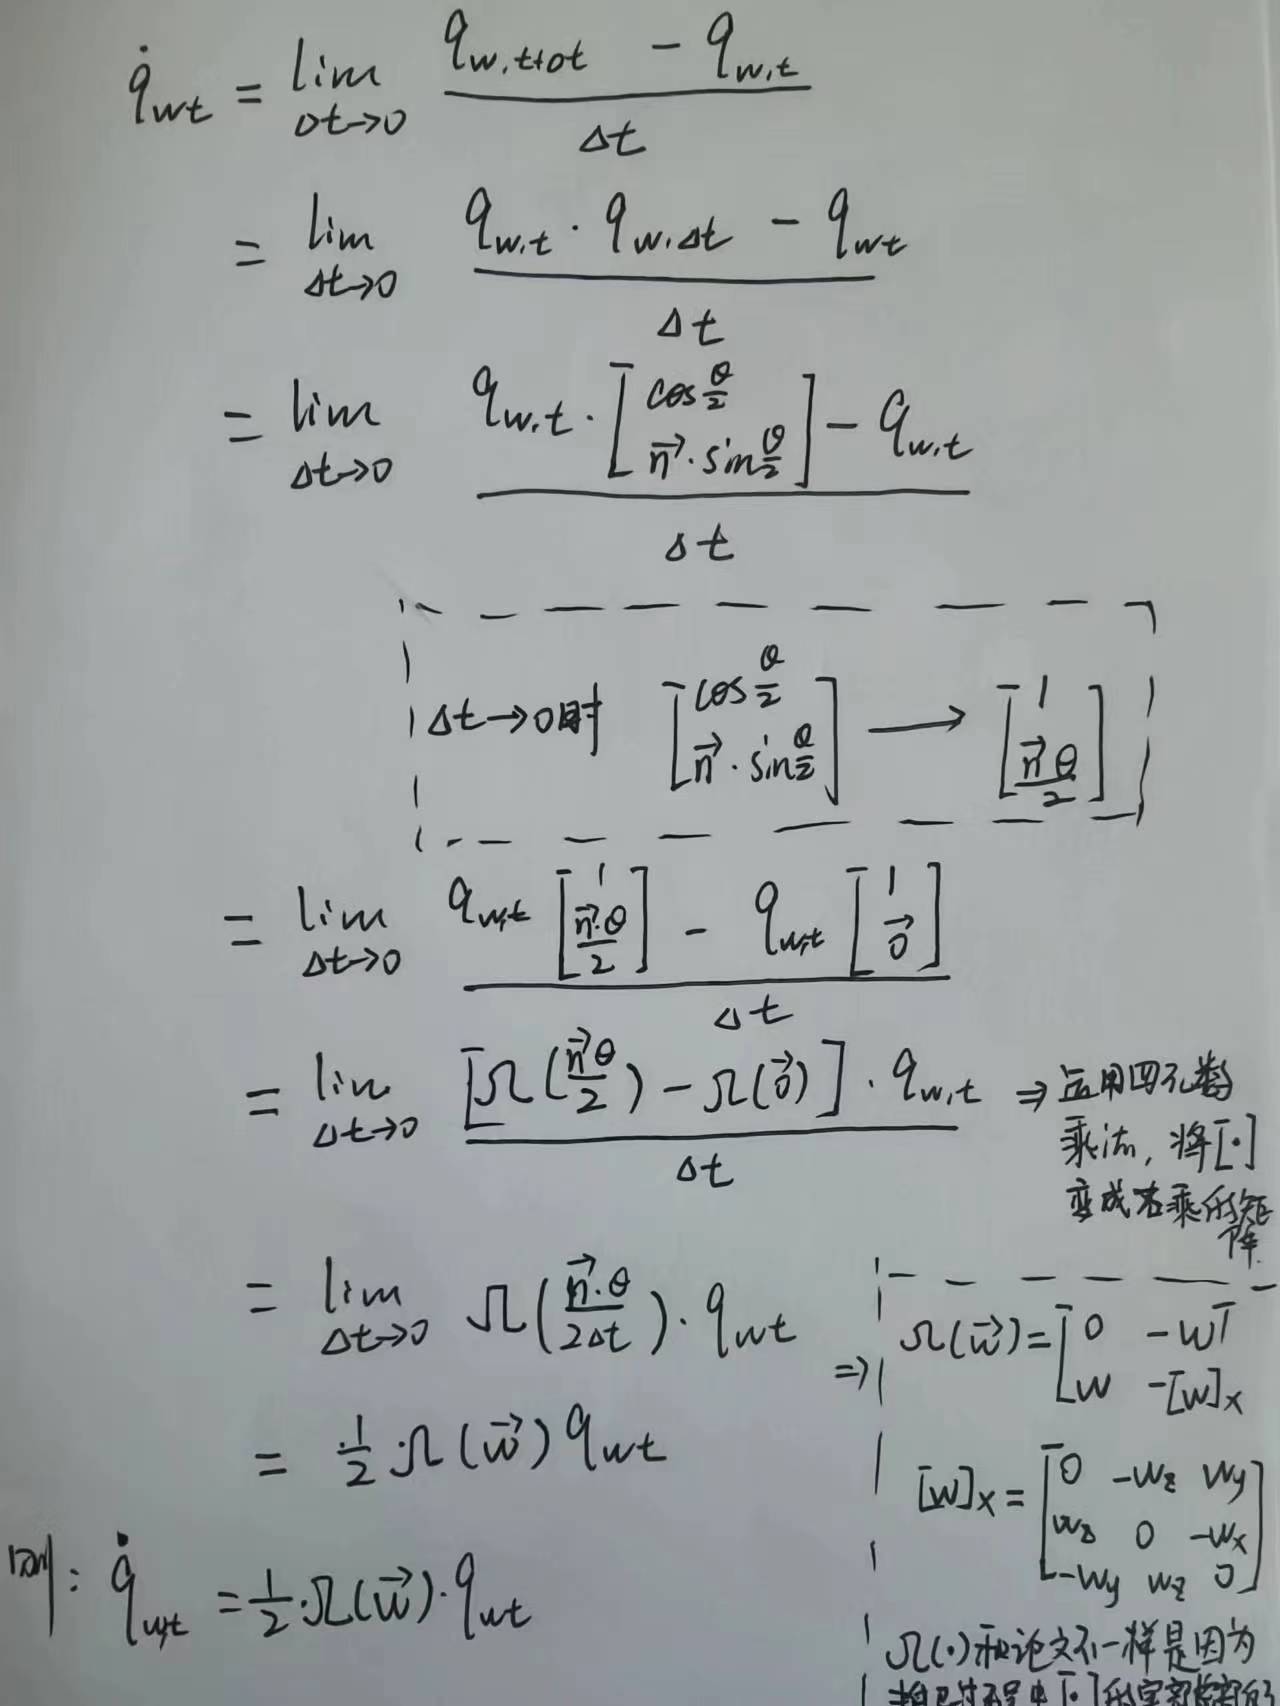 q̇_{wt} = lim_{Δt→0} (q_{w,t+Δt} - q_{w,t}) / Δt
= lim_{Δt→0} (q_{w,t} · q_{w,Δt} - q_{wt}) / Δt
= lim_{Δt→0} (q_{w,t} · [cos θ/2 ; n⃗ · sin θ/2] - q_{w,t}) / Δt
Δt→0时 [cos θ/2 ; n⃗ · sin θ/2] → [1 ; n⃗θ/2]
= lim_{Δt→0} (q_{w,t} [1 ; n⃗·θ/2] - q_{w,t} [1 ; 0⃗]) / Δt
= lim_{Δt→0} [Ω(n⃗θ/2) - Ω(0⃗)] · q_{w,t} / Δt ⇒ 运用四元数
乘法, 将[·]
变成右乘的矩
阵
= lim_{Δt→0} Ω(n⃗·θ/2Δt) · q_{wt}
⇒ Ω(w⃗) = [0 -wᵀ ; w -[w]ₓ]
= 1/2 · Ω(w⃗) q_{wt}
[w]ₓ = [0 -w_z w_y ; w_z 0 -w_x ; -w_y w_z 0]
则: q̇_{w,t} = 1/2 · Ω(w⃗) · q_{wt}
Ω(·)和论文不一样是因为